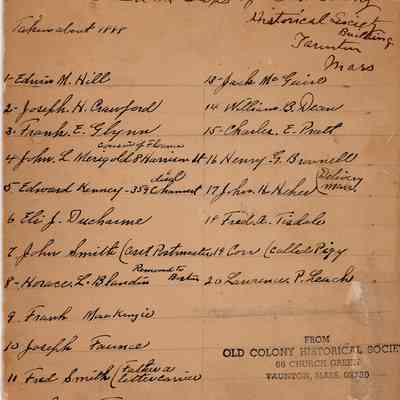 Historical Society
Building
Taunton
Mass
Taken about 1888
1- Edwin M. Hill
2- Joseph H. Crawford
3. Frank. E. Glynn
cousin of Florence
4 John. L. Merigold 8 Harrison St
died
5 Edward Kenney - 359 Cohannet
6 Eli J. Ducharme
7 John Smith (Asst Postmaster
Removed to
Boston
8- Horace L. Blandin
9. Frank MacKenzie
10 Joseph Faunce
11 Fred Smith (Father a
letter carrier
13- Jack McGuire
14 William B. Dean
15- Charles. E. Pratt
16 Henry G. Brownell
17 John. H.
(Delivery
man
18 Fred. A. Tisdale
19 Corr (called Pigy
20 Lawrence. P. Leach
FROM
OLD COLONY HISTORICAL SOCIE
66 CHURCH GREEN
TAUNTON, MASS. 02780